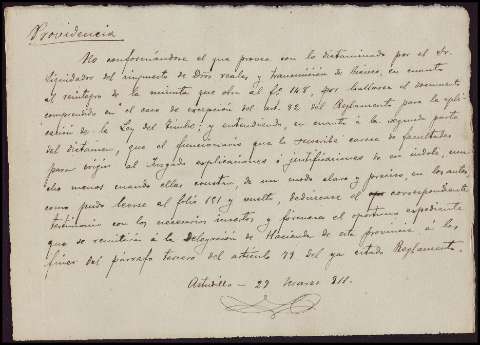 Providencia
No conformándose el que provee con lo dictaminado por el Sr.
Liquidador del impuesto de Dros reales y transmisión de bienes, en cuanto
al reintegro de la minuta que obra al fo. 148, por hallarse el documento
comprendido en el caso de excepción del art. 82 del Reglamento para la apli-
cación de la Ley del timbre; y entendiendo, en cuanto á la segunda parte
del dictámen, que el funcionario que lo suscribe carece de facultades
para exigir al Juzgado explicaciones ó justificaciones de esa índole, mu-
cho menos cuando ellas constan, de un modo claro y preciso, en los autos,
como pudo leerse al folio 191 y vuelto, dedúzcase el correspondiente
testimonio con los necesarios insertos y fórmese el oportuno expediente
que se remitirá á la Delegación de Hacienda de esta provincia á los
fines del párrafo tercero del artículo 79 del ya citado Reglamento.
Astudillo - 27 Marzo 911.